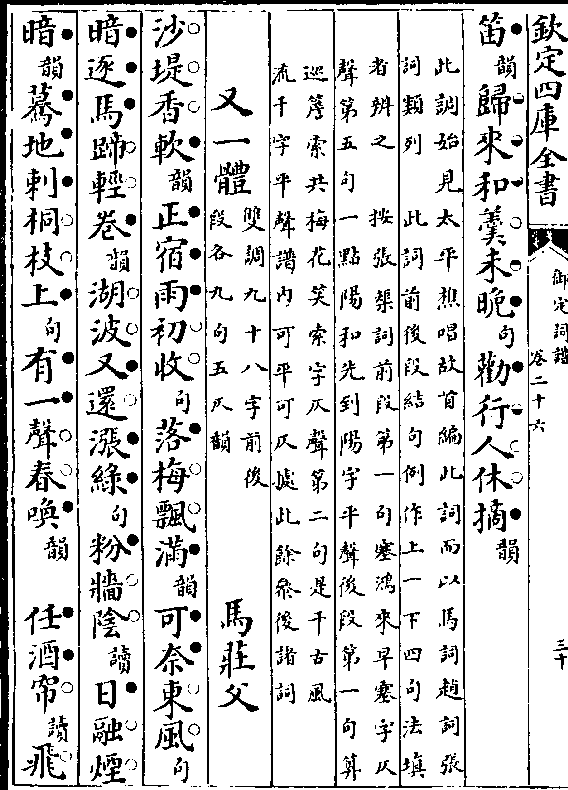 欽定四庫全書
御定詞譜
卷二十六
三十
笛韻歸來和羹未晚句勸行人休摘韻
此調始見太平樵唱故首編此詞而以馬詞趙詞張
詞類列　此詞前後段結句例作上一下四句法填
者辨之　按張榘詞前段第一句塞鴻來早塞字仄
聲第五句一點陽和先到陽字平聲後段第一句算
巡簷索共梅花笑索字仄聲第二句是千古風
流千字平聲譜內可平可仄據此餘參後諸詞
又一體　雙調九十八字前後
段各九句五仄韻　馬莊父
沙堤香軟韻正宿雨初收句落梅飄滿韻可奈東風句
暗逐馬蹄輕卷韻湖波又還漲綠句粉牆陰讀日融煙
暗韻驀地刺桐枝上句有一聲春喚韻　任酒帘讀飛